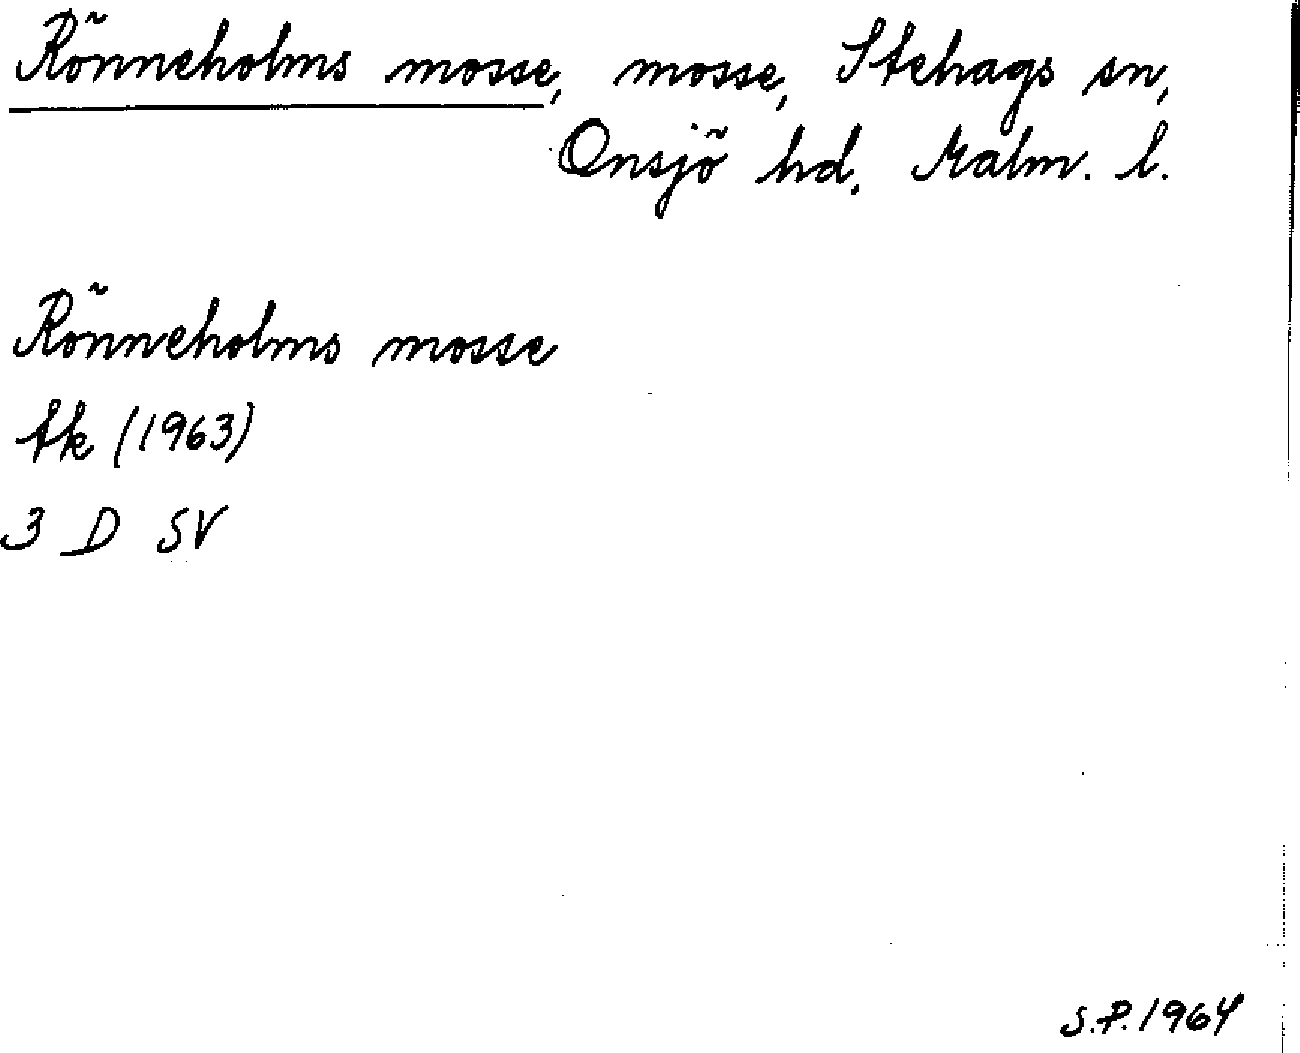 Rönneholms mosse, mosse, Stehags sn,
Onsjö hd, Malm. l.
Rönneholms mosse
tk (1963)
3 D SV
S.P. 1964